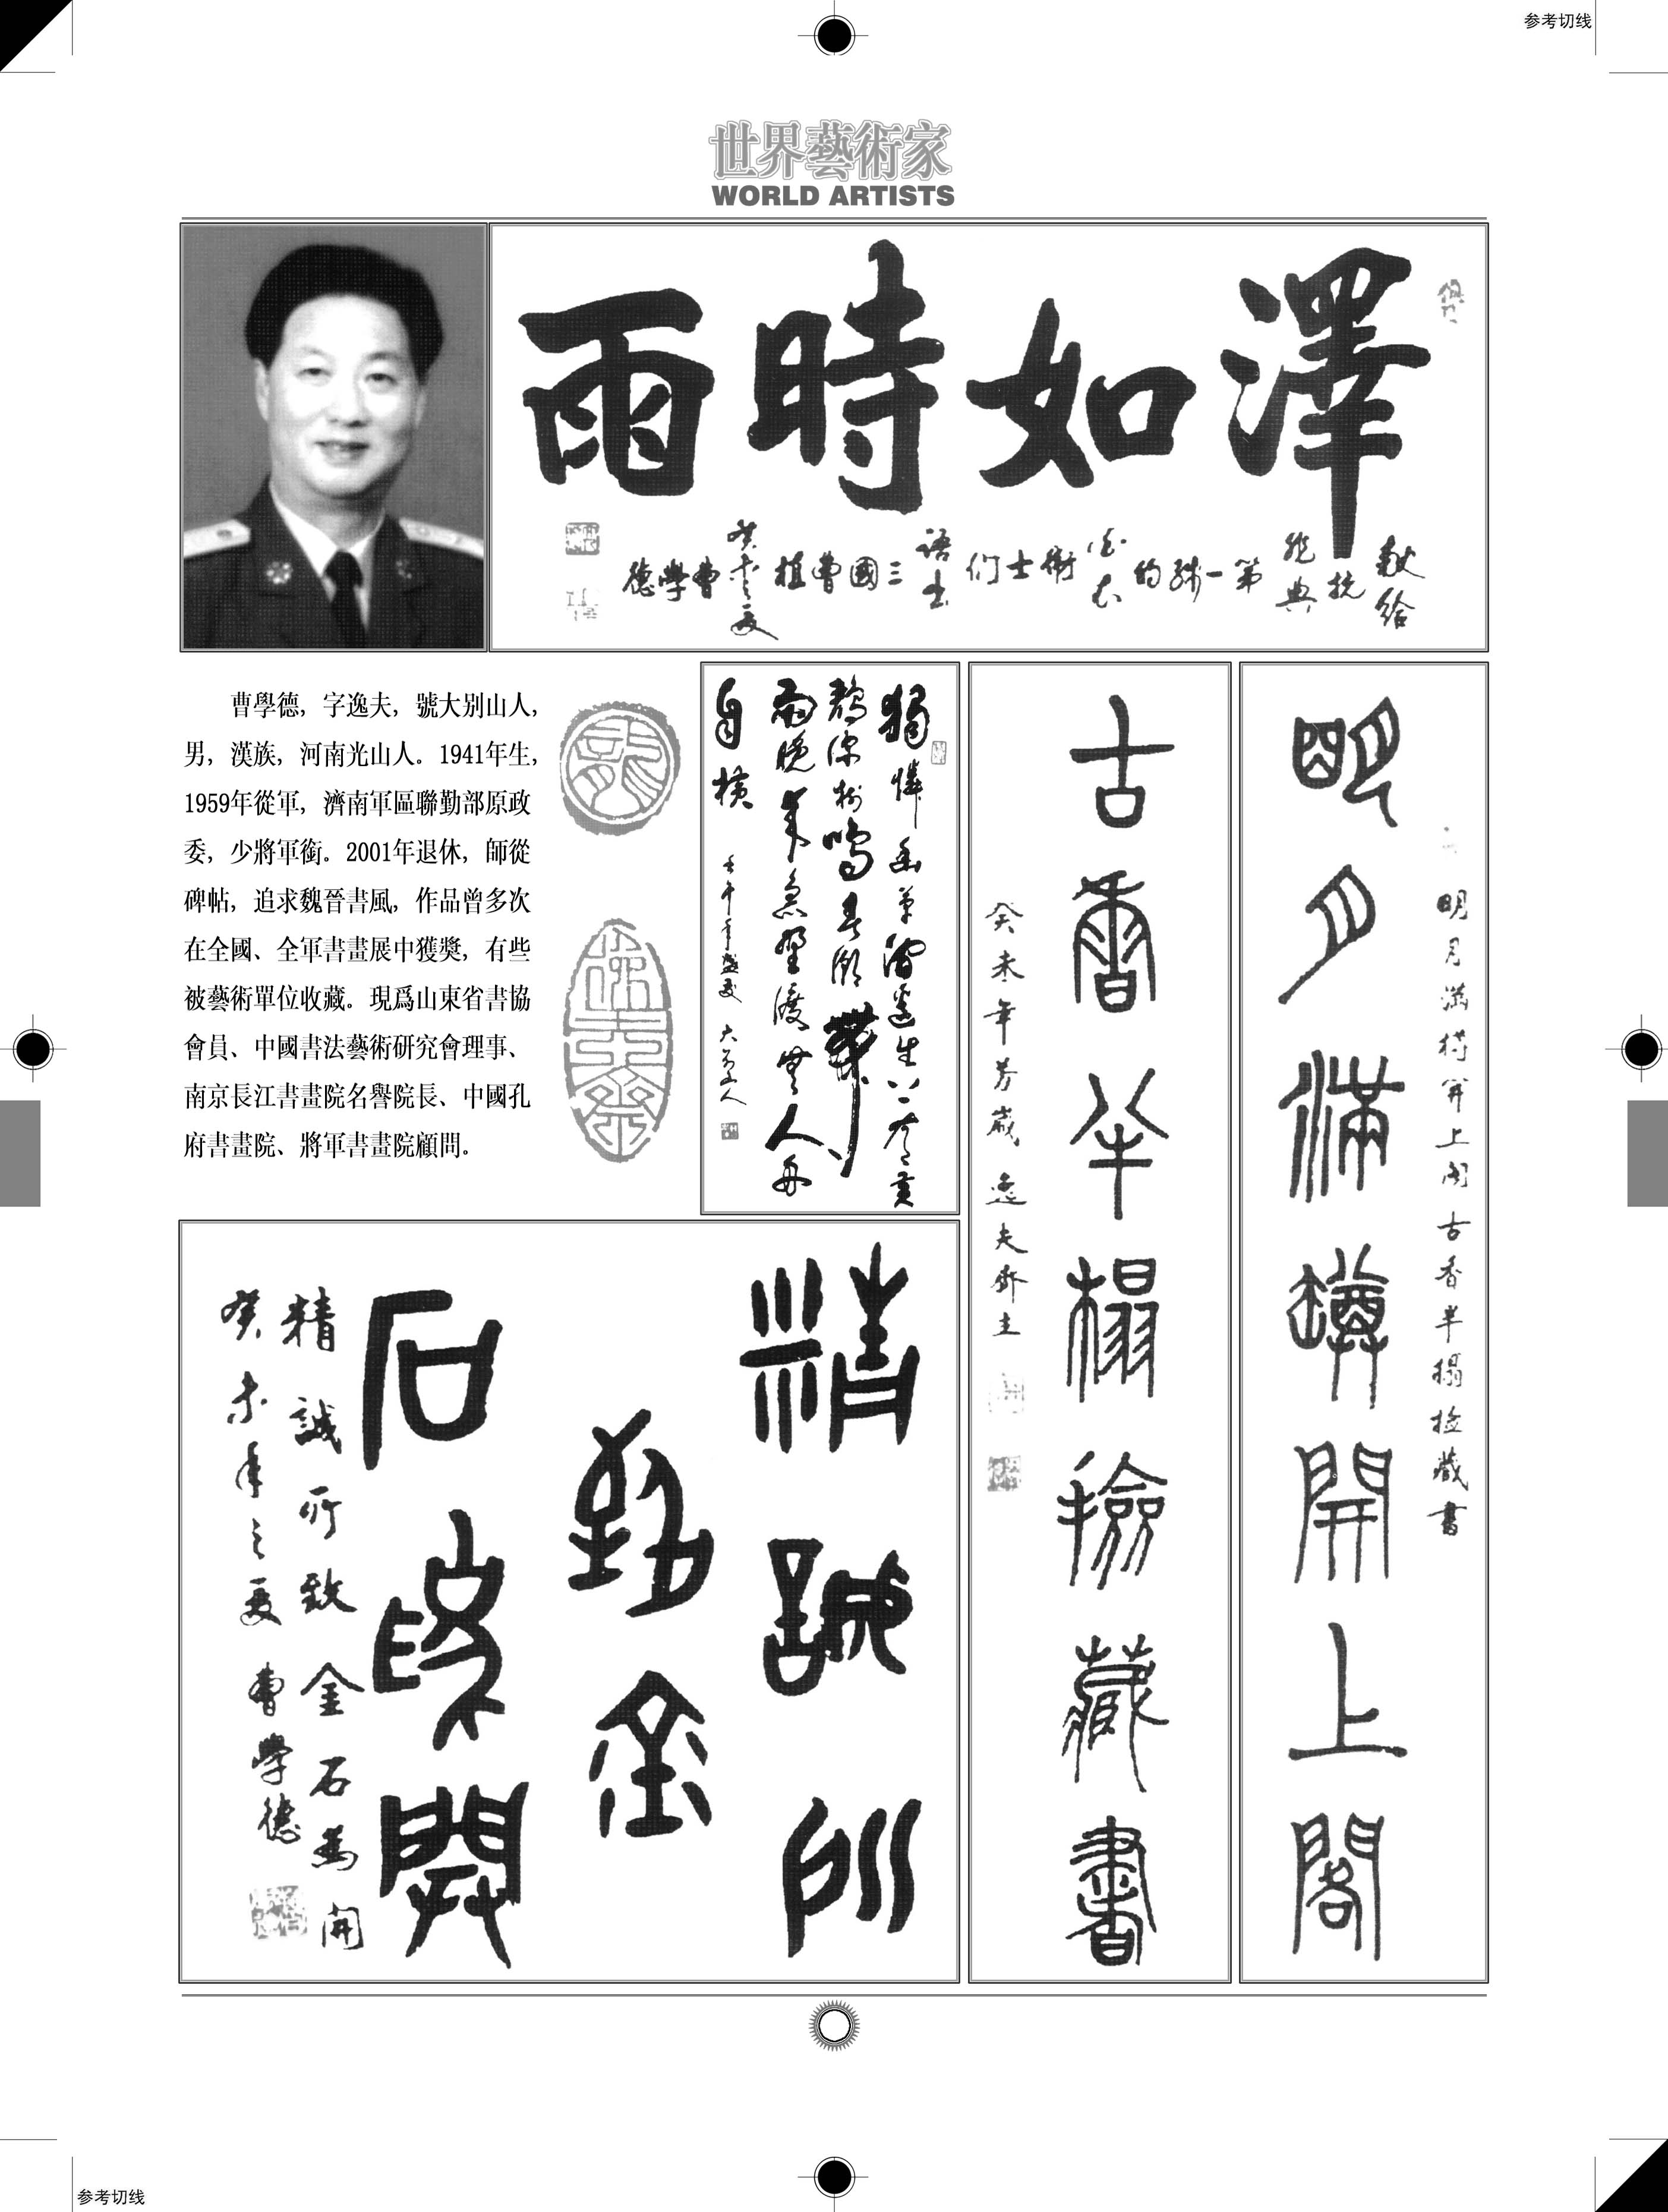 参考切线
世界藝術家
WORLD ARTISTS
澤如時雨
獻給
抗
非典
第一线的
白衣
衛士们
语出
三國曹植
癸未之夏
曹學德
曹學德，字逸夫，號大别山人，
男，漢族，河南光山人。1941年生，
1959年從軍，濟南軍區聯勤部原政
委，少將軍銜。2001年退休，師從
碑帖，追求魏晉書風，作品曾多次
在全國、全軍書畫展中獲獎，有些
被藝術單位收藏。現爲山東省書協
會員、中國書法藝術研究會理事、
南京長江書畫院名譽院長、中國孔
府書畫院、將軍書畫院顧問。
獨憐幽草澗邊生上有黄
鹂深树鳴春潮帶
雨晚来急野渡無人舟
自横
壬午年盛夏 大别山人
明月滿樽開上閣
明月满樽开上阁古香半榻捡藏書
古香半榻撿藏書
癸未年芳歲逸夫斋主
精誠所
致金
石為開
精誠所致金石為開
癸未年之夏 曹學德
参考切线